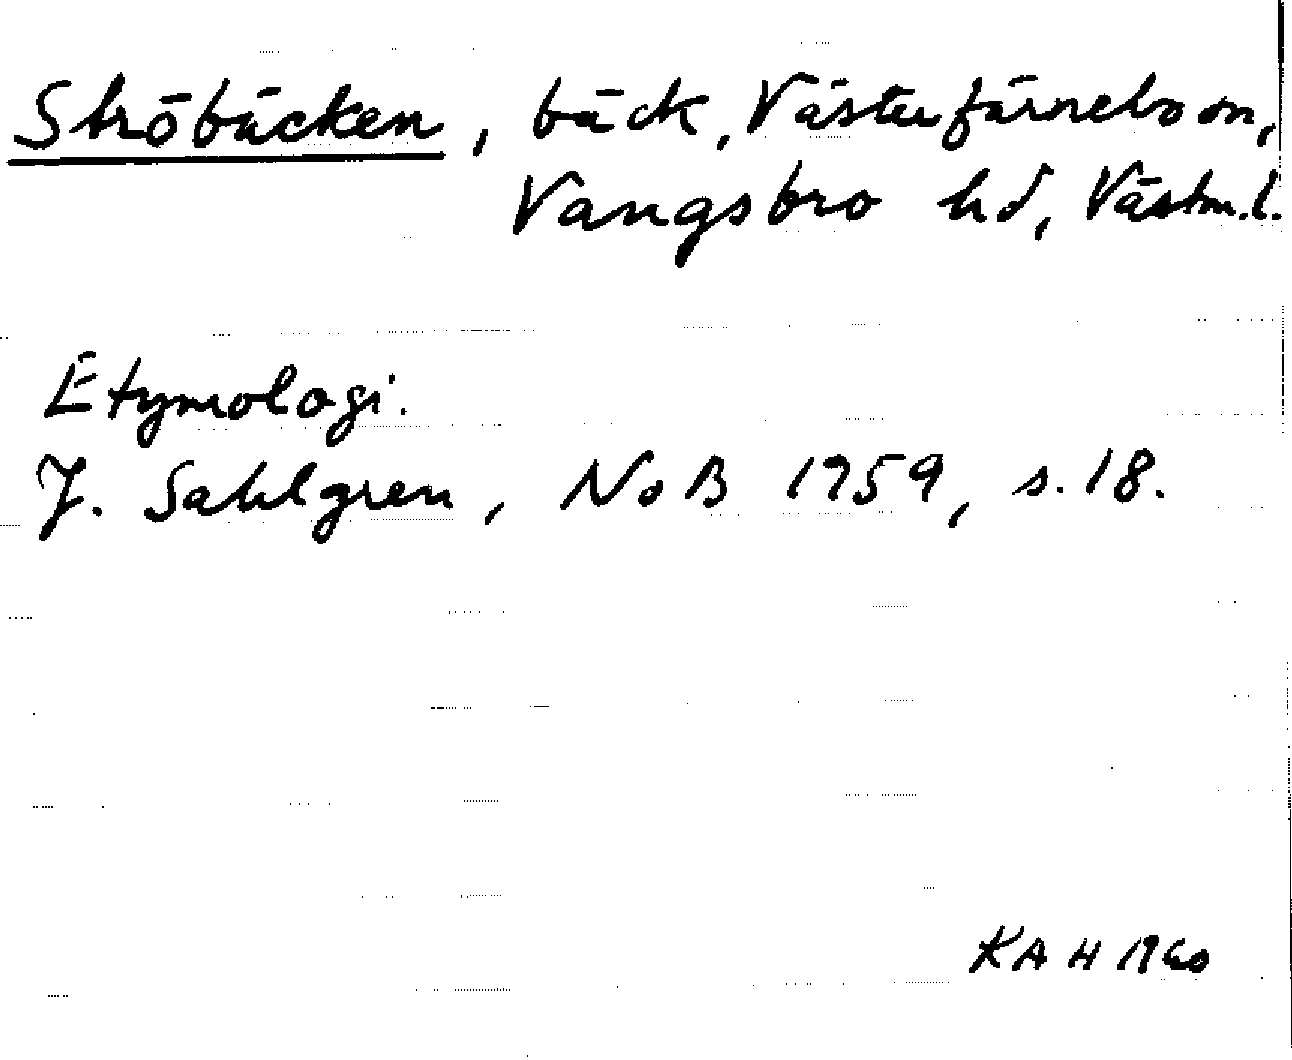 Ströbäcken, bäck, Västerfärnebo sn,
Vangsbro hd, Västm.l.
Etymologi.
J. Sahlgren, NoB 1959, s. 18.
KAH 1960